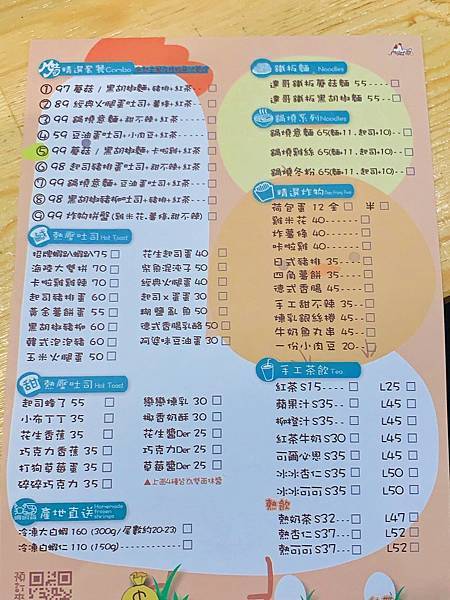 精選套餐Combo
① 97 蘑菇/黑胡椒麵+豬排+紅茶--
② 89 經典火腿蛋吐司+薯條+紅茶---
③ 99 鍋燒意麵+甜不辣+紅茶----
④ 59 豆油蛋吐司+小肉豆+紅茶---
⑤ 99 蘑菇/黑胡椒麵+卡啦雞+紅茶
⑥ 98 起司豬排蛋吐司+甜不辣+紅茶
⑦ 99 鍋燒意麵+豆油蛋吐司+紅茶--
⑧ 98 黑胡椒豬柳吐司+豬排+紅茶--
⑨ 99 炸物拼盤(雞米花.薯條.甜不辣)
鹹 熱壓吐司 Hot Toast
招牌蝦趴蝦趴75
海陸大雙拼 70
卡啦雞雞辣 70
起司豬排蛋 60
黃金薯餅蛋 55
黑胡椒豬柳 60
韓式泡泡豬 60
玉米火腿蛋 50
花生起司蛋 40
紫魚混沌子 50
經典火腿蛋 40
起司x蛋蛋 30
糊醬亂魚 50
德式香腸乳酪 50
阿婆咪豆油蛋 30
甜 熱壓吐司 Hot Toast
起司蜂了 55
小布丁丁 35
花生香蕉 35
巧克力香蕉 35
打狗草莓蛋 35
碎碎巧克力 35
戀戀煉乳 30
椰香奶酥 30
花生醬Der 25
巧克力Der 25
草莓醬Der 25
▲上面4種皆為雙面抹醬
產地直送 Homemade frozen shrimps
冷凍大白蝦 160 (300g/尾數約20-23)
冷凍白蝦仁 110 (150g)
鐵板麵 Noodles
達哥鐵板蘑菇麵 55-----
達哥鐵板黑胡椒麵 55---
鍋燒系列Noodles
鍋燒意麵 65(麵+11.起司+10)--
鍋燒雞絲 65(麵+11.起司+10)--
鍋燒冬粉 65(麵+11.起司+10)--
精選炸物 Deep Frying Food
荷包蛋 12 全 半
雞米花 40
炸薯條 40
卡啦雞 40
日式豬排 35
四角薯餅 35
德式香腸 45
手工甜不辣 35
煉乳銀絲捲 45
牛奶魚丸串 45
一份小肉豆 20
手工茶飲 Tea
紅茶 S15---- L25
蘋果汁 S35-- L45
柳橙汁 S35-- L45
紅茶牛奶 S30 L45
可爾必思 S35 L45
冰冰杏仁 S35 L50
冰冰可可 S35 L50
熱飲
熱奶茶 S32-- L47
熱杏仁 S37-- L52
熱可可 S37-- L52